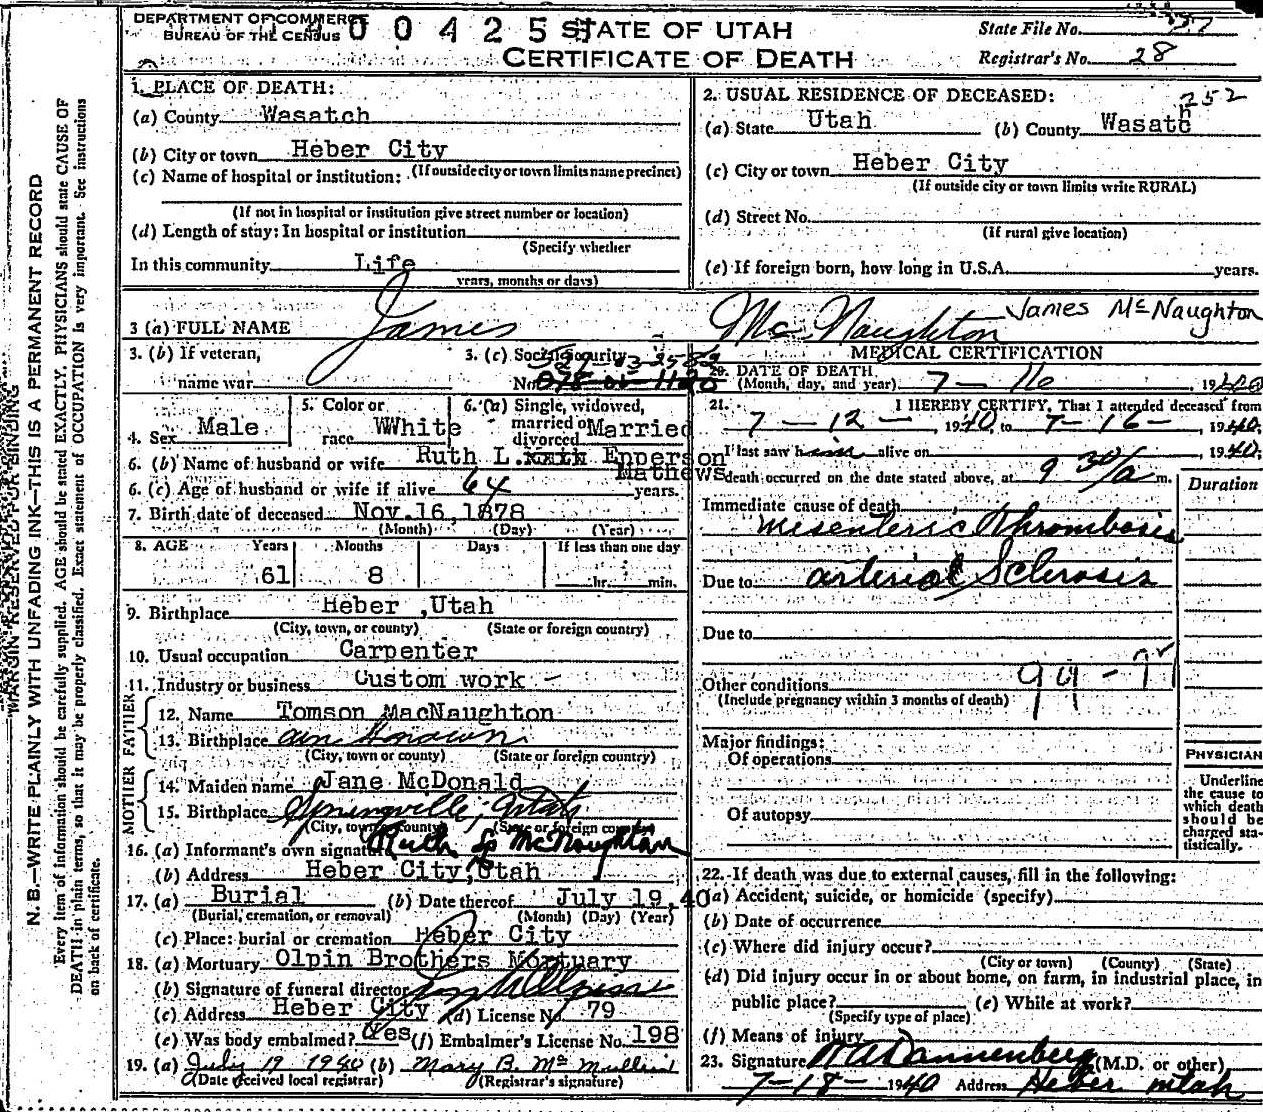 DEPARTMENT OF COMMERCE
BUREAU OF THE CENSUS
0 0 4 2 5
STATE OF UTAH
CERTIFICATE OF DEATH
State File No.
Registrar's No. 28
1. PLACE OF DEATH:
(a) County Wasatch
(b) City or town Heber City
(If outside city or town limits name precinct)
(c) Name of hospital or institution:
(If not in hospital or institution give street number or location)
(d) Length of stay: In hospital or institution
(Specify whether
In this community Life
years, months or days)
2. USUAL RESIDENCE OF DECEASED: 252
(a) State Utah (b) County Wasatch
(c) City or town Heber City
(If outside city or town limits write RURAL)
(d) Street No.
(If rural give location)
(e) If foreign born, how long in U.S.A. years.
3 (a) FULL NAME James McNaughton James McNaughton
3. (b) If veteran,
name war
3. (c) Social Security
No.
4. Sex Male
5. Color or
race WWhite
6. (a) Single, widowed,
married or
divorced Married
6. (b) Name of husband or wife Ruth L. Epperson
Mathews
6. (c) Age of husband or wife if alive 64 years.
7. Birth date of deceased Nov. 16, 1878
(Month) (Day) (Year)
8. AGE Years Months Days If less than one day
61 8 hr. min.
9. Birthplace Heber, Utah
(City, town, or county) (State or foreign country)
10. Usual occupation Carpenter
11. Industry or business Custom work -
FATHER
12. Name Tomson MacNaughton
13. Birthplace
(City, town or county) (State or foreign country)
MOTHER
14. Maiden name Jane McDonald
15. Birthplace Springville, Utah
(City, town or county) (State or foreign country)
16. (a) Informant's own signature Ruth L McNaughton
(b) Address Heber City, Utah
17. (a) Burial (b) Date thereof July 19, 40
(Burial, cremation, or removal) (Month) (Day) (Year)
(c) Place: burial or cremation Heber City
18. (a) Mortuary Olpin Brothers Mortuary
(b) Signature of funeral director
(c) Address Heber City (d) License No. 79
(e) Was body embalmed? Yes (f) Embalmer's License No. 198
19. (a) July 19 1940 (b) Mary B. McMullin
(Date received local registrar) (Registrar's signature)
MEDICAL CERTIFICATION
20. DATE OF DEATH
(Month, day, and year) 7-16, 1940
21. I HEREBY CERTIFY, That I attended deceased from
7-12-, 1940, to 7-16-, 1940;
I last saw him alive on , 1940;
death occurred on the date stated above, at 9 30/a m.
Duration
Immediate cause of death
mesenteric thrombosis
Due to arterial Sclerosis
Due to
Other conditions
(Include pregnancy within 3 months of death)
Major findings:
Of operations
Of autopsy
PHYSICIAN
Underline
the cause to
which death
should be
charged sta-
tistically.
22. If death was due to external causes, fill in the following:
(a) Accident, suicide, or homicide (specify)
(b) Date of occurrence
(c) Where did injury occur?
(City or town) (County) (State)
(d) Did injury occur in or about home, on farm, in industrial place, in
public place? (e) While at work?
(Specify type of place)
(f) Means of injury
23. Signature Dannenberg (M.D. or other)
7-18-1940 Address Heber Utah
MARGIN RESERVED FOR BINDING
N. B.—WRITE PLAINLY WITH UNFADING INK—THIS IS A PERMANENT RECORD
Every item of information should be carefully supplied. AGE should be stated EXACTLY. PHYSICIANS should state CAUSE OF
DEATH in plain terms, so that it may be properly classified. Exact statement of OCCUPATION is very important. See instructions
on back of certificate.